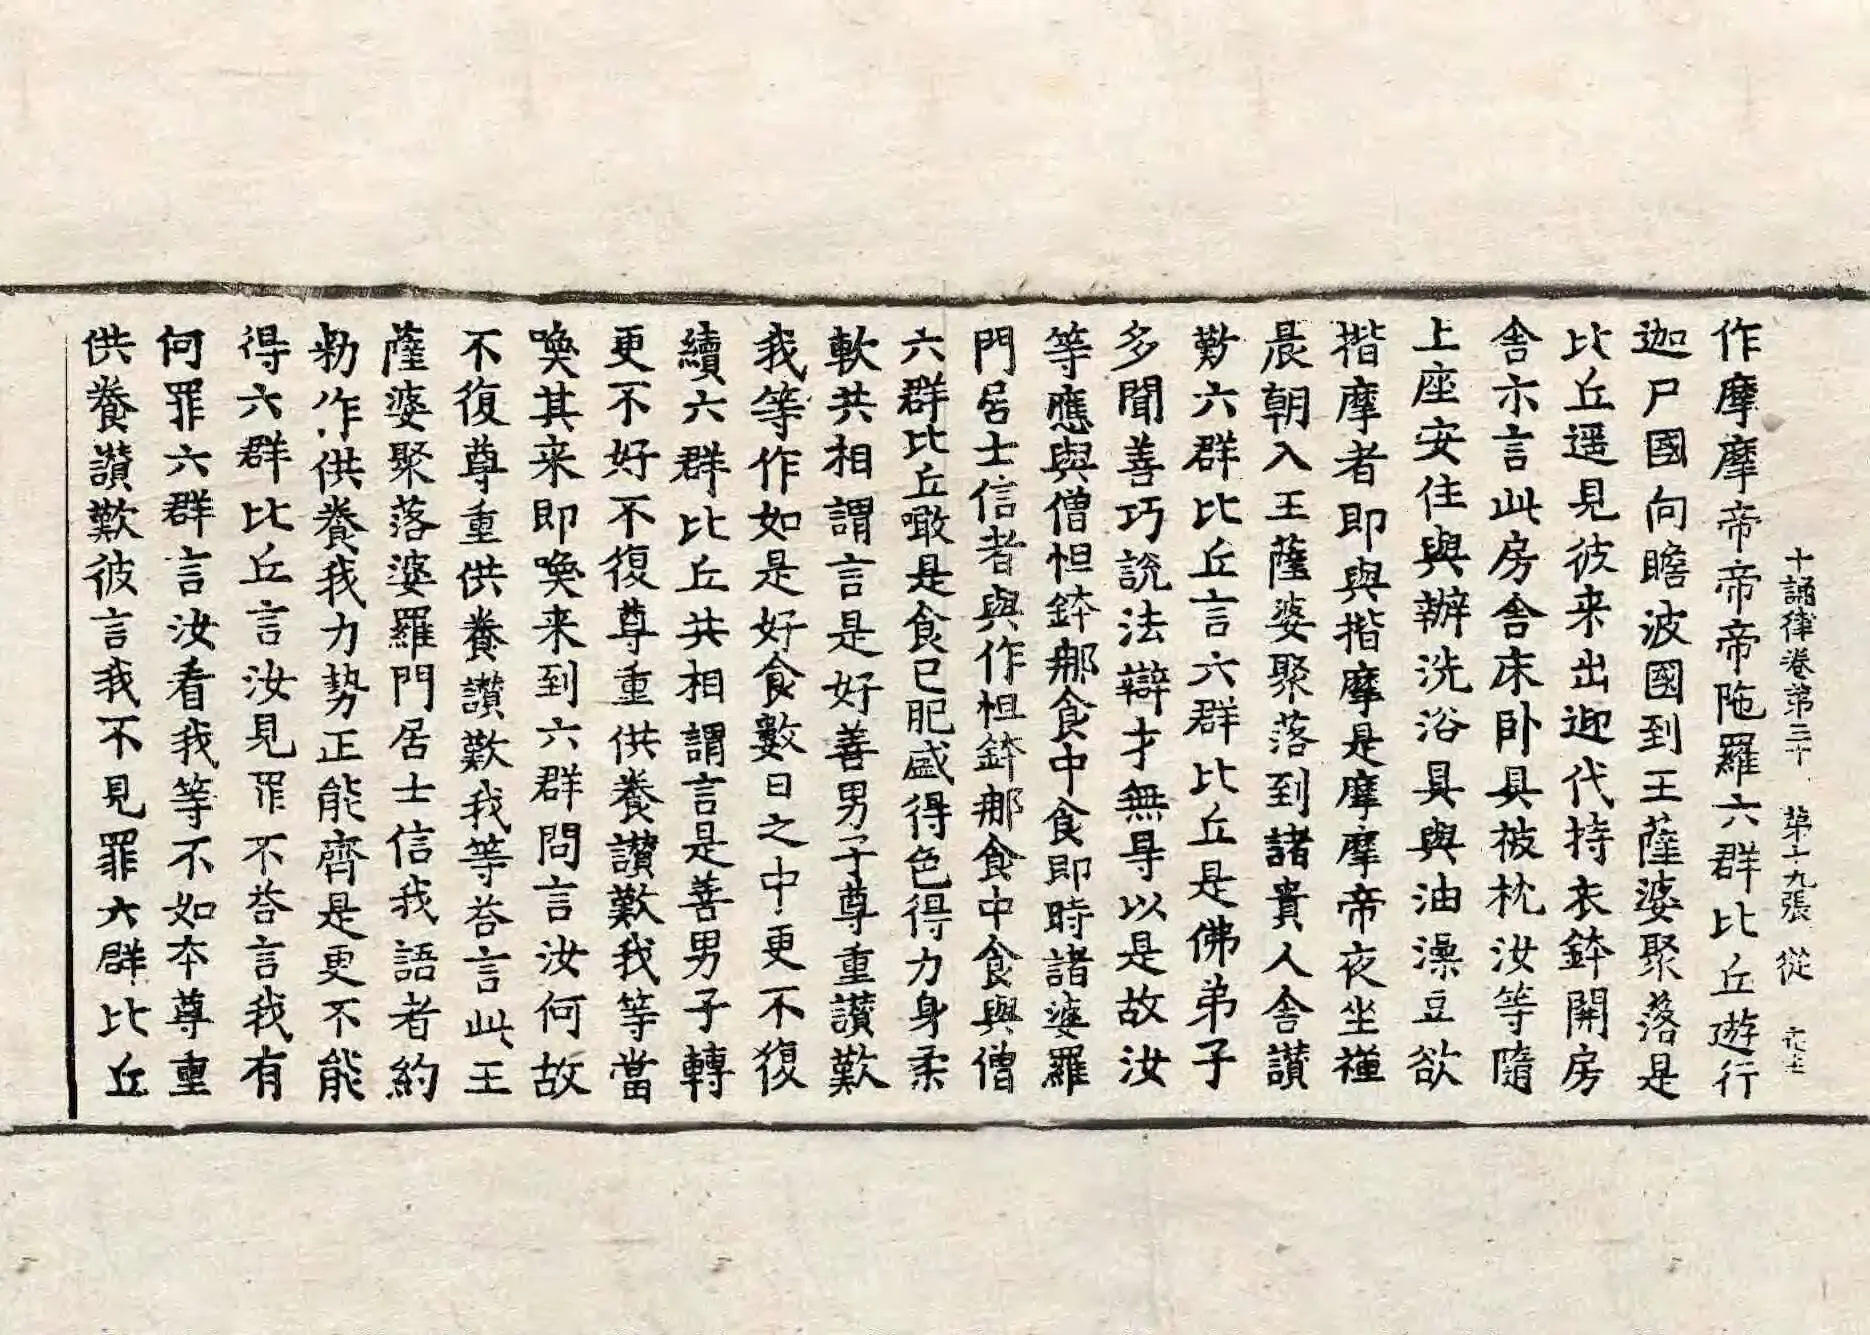 十誦律卷第三十 第十九張 從
作摩摩帝帝帝陁羅六群比丘遊行
迦尸國向瞻波國到王薩婆聚落是
比丘遥見彼来出迎代持衣鉢開房
舍示言此房舍床卧具被枕汝等隨
上座安住與辦洗浴具與油澡豆欲
揩摩者即與揩摩是摩摩帝夜坐禅
晨朝入王薩婆聚落到諸貴人舍讃
歎六群比丘言六群比丘是佛弟子
多聞善巧說法辯才無㝵以是故汝
等應與僧怛鉢那食中食即時諸婆羅
門居士信者與作怛鉢那食中食與僧
六群比丘噉是食已肥盛得色得力身柔
軟共相謂言是好善男子尊重讃歎
我等作如是好食數日之中更不復
續六群比丘共相謂言是善男子轉
更不好不復尊重供養讃歎我等當
喚其来即喚来到六群問言汝何故
不復尊重供養讃歎我等荅言此王
薩婆聚落婆羅門居士信我語者約
勑作供養我力勢正能齊是更不能
得六群比丘言汝見罪不荅言我有
何罪六群言汝看我等不如本尊重
供養讃歎彼言我不見罪六群比丘